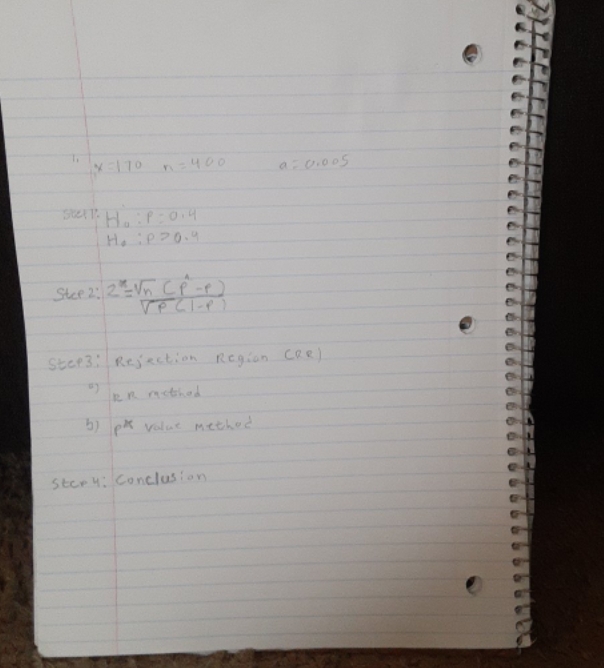 1. x=170 n=400 a=0.005
Step1: H₀:P=0.4
H₀:P>0.4
Step2: Z*=√n(p̂-p)
√p(1-p)
Step3: Rejection Region (RR)
a) RR method
b) p* value Method
Step 4: Conclusion